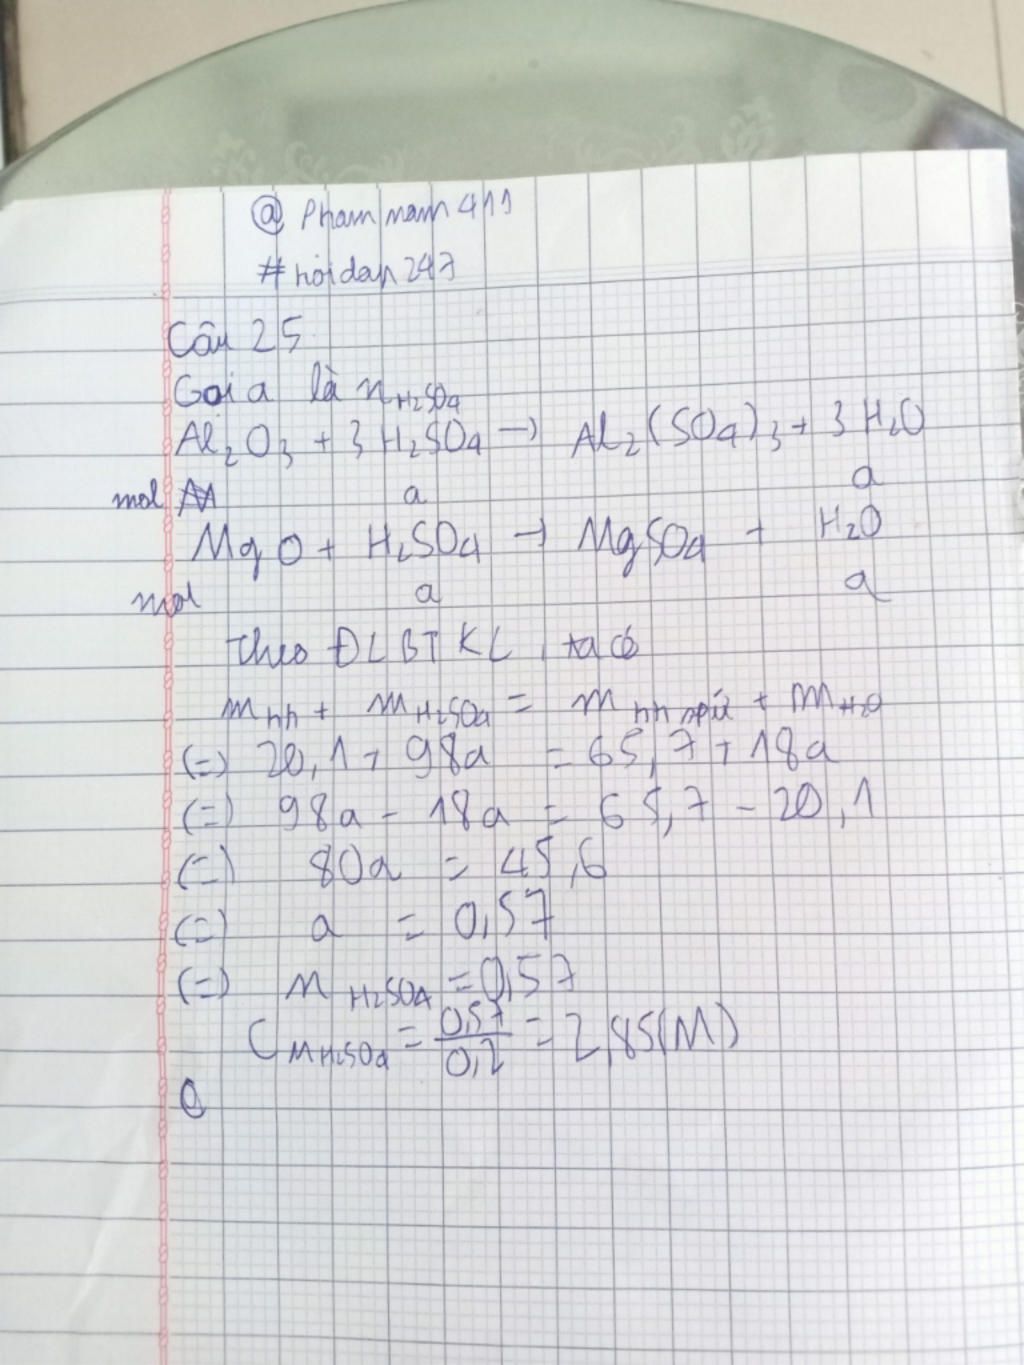 @ Phamnam411
#hoidap247
Câu 25
Gọi a là nH₂SO₄
Al₂O₃ + 3H₂SO₄ → Al₂(SO₄)₃ + 3H₂O
mol a a
MgO + H₂SO₄ → MgSO₄ + H₂O
mol a a
Theo ĐLBTKL, ta có
mhh + mH₂SO₄ = mhh spứ + mH₂O
(=) 20,1 + 98a = 65,7 + 18a
(=) 98a - 18a = 65,7 - 20,1
(=) 80a = 45,6
(=) a = 0,57
(=) nH₂SO₄ = 0,57
CMH₂SO₄ = 0,57/0,2 = 2,85(M)